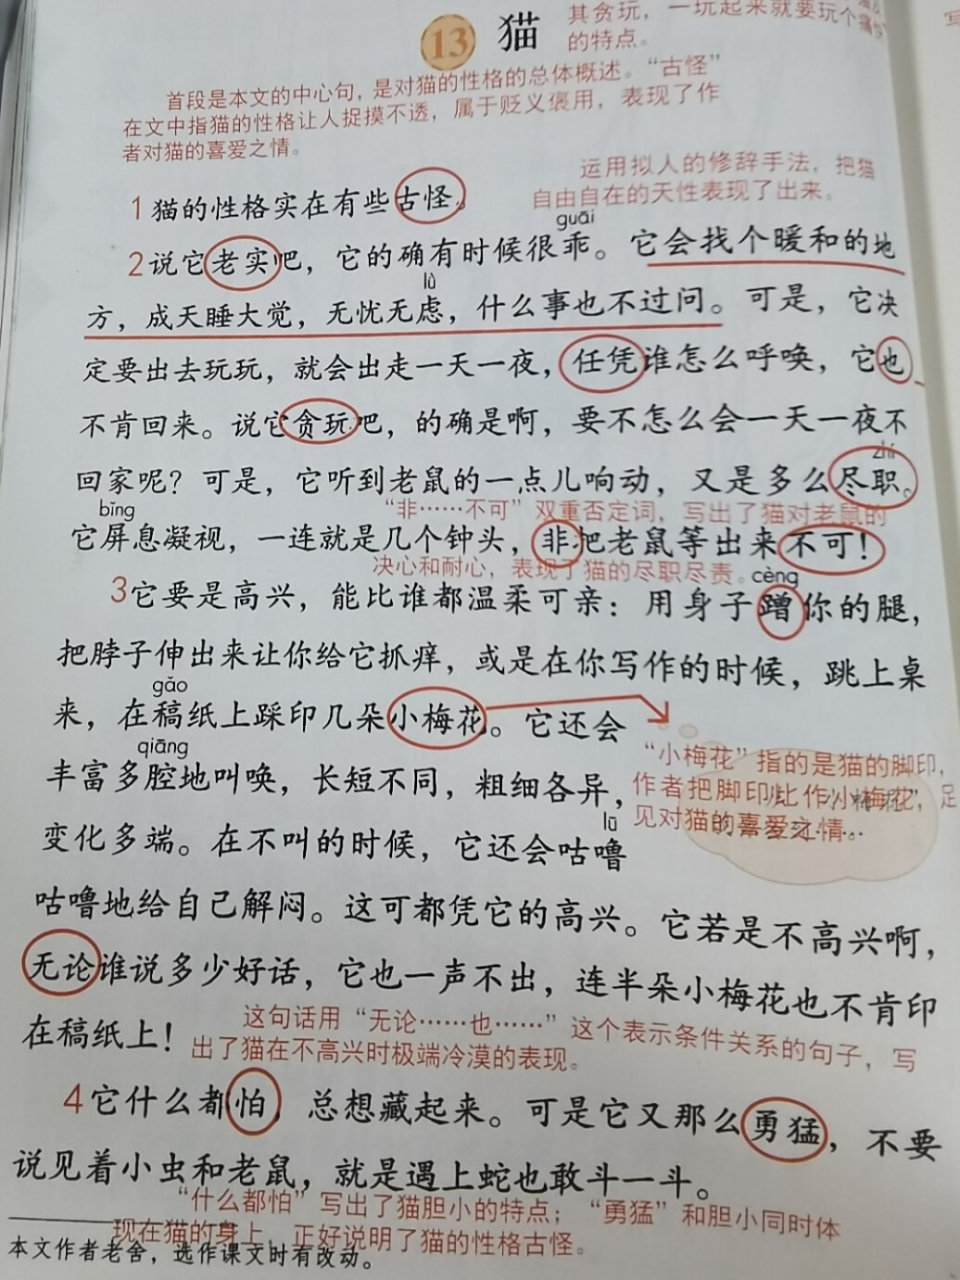 13 猫
其贪玩，一玩起来就要玩个痛快
的特点。
首段是本文的中心句，是对猫的性格的总体概述。“古怪”
在文中指猫的性格让人捉摸不透，属于贬义褒用，表现了作
者对猫的喜爱之情。
运用拟人的修辞手法，把猫
自由自在的天性表现了出来。
1 猫的性格实在有些古怪。
guāi
2 说它老实吧，它的确有时候很乖。它会找个暖和的地
lǜ
方，成天睡大觉，无忧无虑，什么事也不过问。可是，它决
定要出去玩玩，就会出走一天一夜，任凭谁怎么呼唤，它也
不肯回来。说它贪玩吧，的确是啊，要不怎么会一天一夜不
zhí
回家呢？可是，它听到老鼠的一点儿响动，又是多么尽职。
bǐng
“非……不可”双重否定词，写出了猫对老鼠的
它屏息凝视，一连就是几个钟头，非把老鼠等出来不可！
决心和耐心，表现了猫的尽职尽责。
cèng
3 它要是高兴，能比谁都温柔可亲：用身子蹭你的腿，
把脖子伸出来让你给它抓痒，或是在你写作的时候，跳上桌
gǎo
来，在稿纸上踩印几朵小梅花。它还会
qiāng
丰富多腔地叫唤，长短不同，粗细各异，
“小梅花”指的是猫的脚印，
作者把脚印比作“小梅花”，足
见对猫的喜爱之情。
lū
变化多端。在不叫的时候，它还会咕噜
咕噜地给自己解闷。这可都凭它的高兴。它若是不高兴啊，
无论谁说多少好话，它也一声不出，连半朵小梅花也不肯印
在稿纸上！
这句话用“无论……也……”这个表示条件关系的句子，写
出了猫在不高兴时极端冷漠的表现。
4 它什么都怕，总想藏起来。可是它又那么勇猛，不要
说见着小虫和老鼠，就是遇上蛇也敢斗一斗。
“什么都怕”写出了猫胆小的特点；“勇猛”和胆小同时体
现在猫的身上，正好说明了猫的性格古怪。
本文作者老舍，选作课文时有改动。